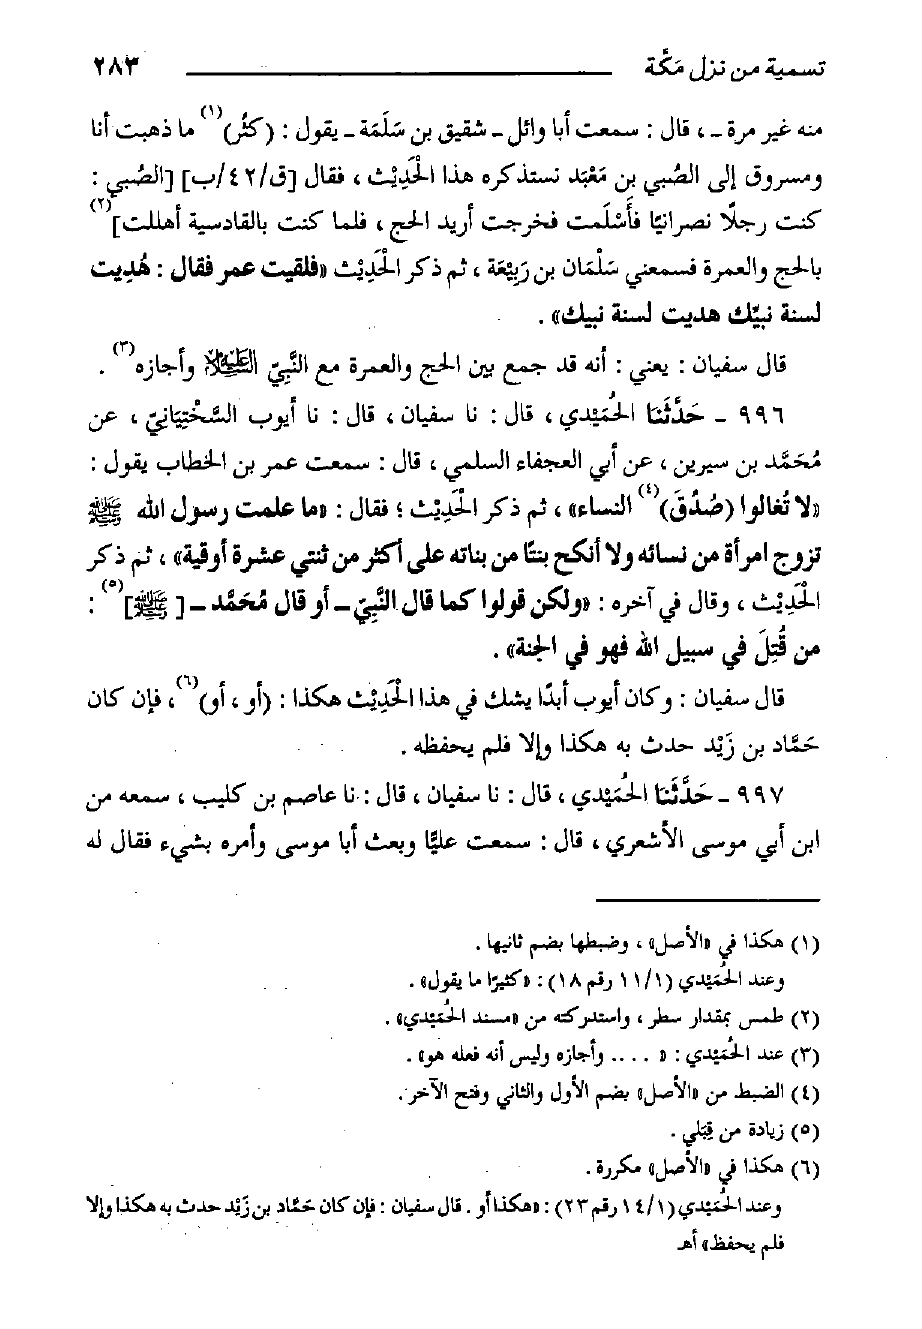 تسمية من نزل مَكَّة ٢٨٣
منه غير مرة ـ، قال : سمعت أبا وائل ـ شقيق بن سَلَمَة ـ يقول : (كثُر)(١) ما ذهبت أنا
ومسروق إلى الصُّبي بن مَعْبَد نستذكره هذا الحَدِيْث ، فقال [ق/٤٢/ب] [الصُّبي :
كنت رجلًا نصرانيًا فأَسْلَمت فخرجت أريد الحج ، فلما كنت بالقادسية أهللت](٢)
بالحج والعمرة فسمعني سَلْمَان بن رَبِيْعَة ، ثم ذكر الحَدِيْث «فلقيت عمر فقال : هُديت
لسنة نبيِّك هديت لسنة نبيك» .
قال سفيان : يعني : أنه قد جمع بين الحج والعمرة مع النَّبِيّ عليه السلام وأجازه(٣) .
٩٩٦ ـ حَدَّثَنَا الحُمَيْدي ، قال : نا سفيان ، قال : نا أيوب السَّخْتِيَانِيّ ، عن
مُحَمَّد بن سيرين ، عن أبي العجفاء السلمي ، قال : سمعت عمر بن الخطاب يقول :
«لا تُغالوا (صُدُقَ)(٤) النساء» ، ثم ذكر الحَدِيْث ؛ فقال : «ما علمت رسول الله ﷺ
تزوج امرأة من نسائه ولا أنكح بنتًا من بناته على أكثر من ثنتي عشرة أوقية» ، ثم ذكر
الحَدِيْث ، وقال في آخره : «ولكن قولوا كما قال النَّبِيّ ـ أو قال مُحَمَّد ـ [ﷺ](٥) :
من قُتِلَ في سبيل الله فهو في الجنة» .
قال سفيان : وكان أيوب أبدًا يشك في هذا الحَدِيْث هكذا : (أو ، أو)(٦)، فإن كان
حَمَّاد بن زَيْد حدث به هكذا وإلا فلم يحفظه .
٩٩٧ ـ حَدَّثَنَا الحُمَيْدي ، قال : نا سفيان ، قال : نا عاصم بن كليب ، سمعه من
ابن أبي موسى الأشعري ، قال : سمعت عليًّا وبعث أبا موسى وأمره بشيء فقال له
(١) هكذا في «الأصل» ، وضبطها بضم ثانيها .
وعند الحُمَيْدي (١/ ١١ رقم ١٨) : «كثيرًا ما يقول» .
(٢) طمس بمقدار سطر ، واستدركته من «مسند الحُمَيْدي» .
(٣) عند الحُمَيْدي : « .... وأجازه وليس أنه فعله هو» .
(٤) الضبط من «الأصل» بضم الأول والثاني وفتح الآخر.
(٥) زيادة من قِبَلي .
(٦) هكذا في «الأصل» مكررة .
وعند الحُمَيْدي (١/ ١٤ رقم ٢٣) : «هكذا أو . قال سفيان : فإن كان حَمَّاد بن زَيْد حدث به هكذا وإلا
فلم يحفظ» أهـ